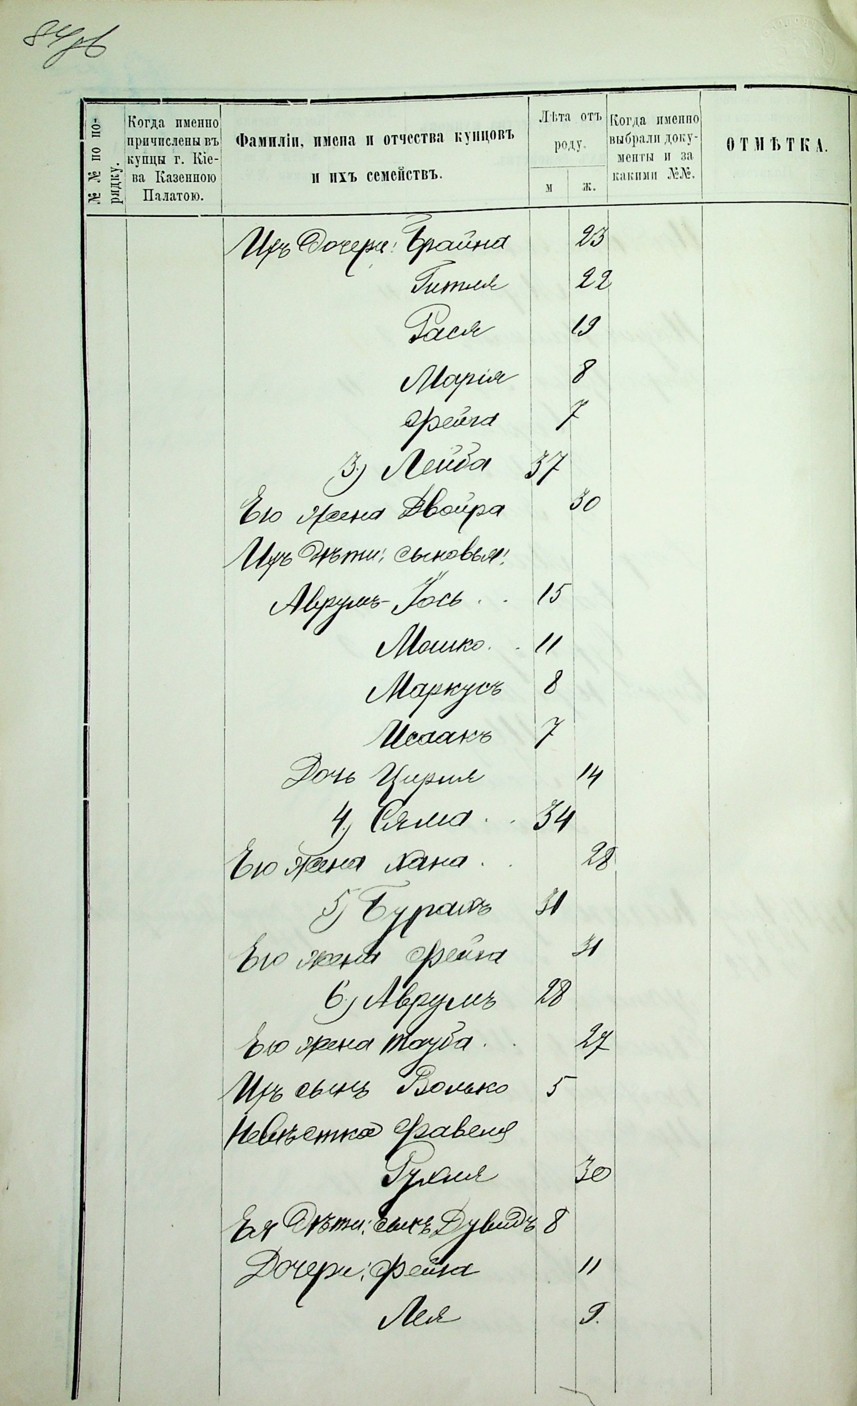 84об
№№ по порядку.
Когда именно причислены въ купцы г. Кіева Казенною Палатою.
Фамиліи, имена и отчества купцовъ и ихъ семействъ.
Лѣта отъ роду.
м
ж.
Когда именно выбрали документы и за какими №№.
ОТМѢТКА.
Ихъ Дочери: Брайна 23
Гитля 22
Рася 19
Марія 8
Фейга 7
3) Лейба 37
Его жена Двойра 30
Ихъ Дѣти: сыновья:
Аврумъ-Іось . . 15
Мошко. . 11
Маркусъ 8
Исаакъ 7
Дочь Цирля 14
4) Сяма . . 34
Его жена Хана . . 28
5) Бурахъ 31
Его жена Фейга 31
6) Аврумъ 28
Его жена Тауба . . 27
Ихъ сынъ Волько 5
Невѣстка Фавеля
Рухля 30
Ея Дѣти: сынъ Дувидъ 8
Дочери: Фейга 11
Лея 9.